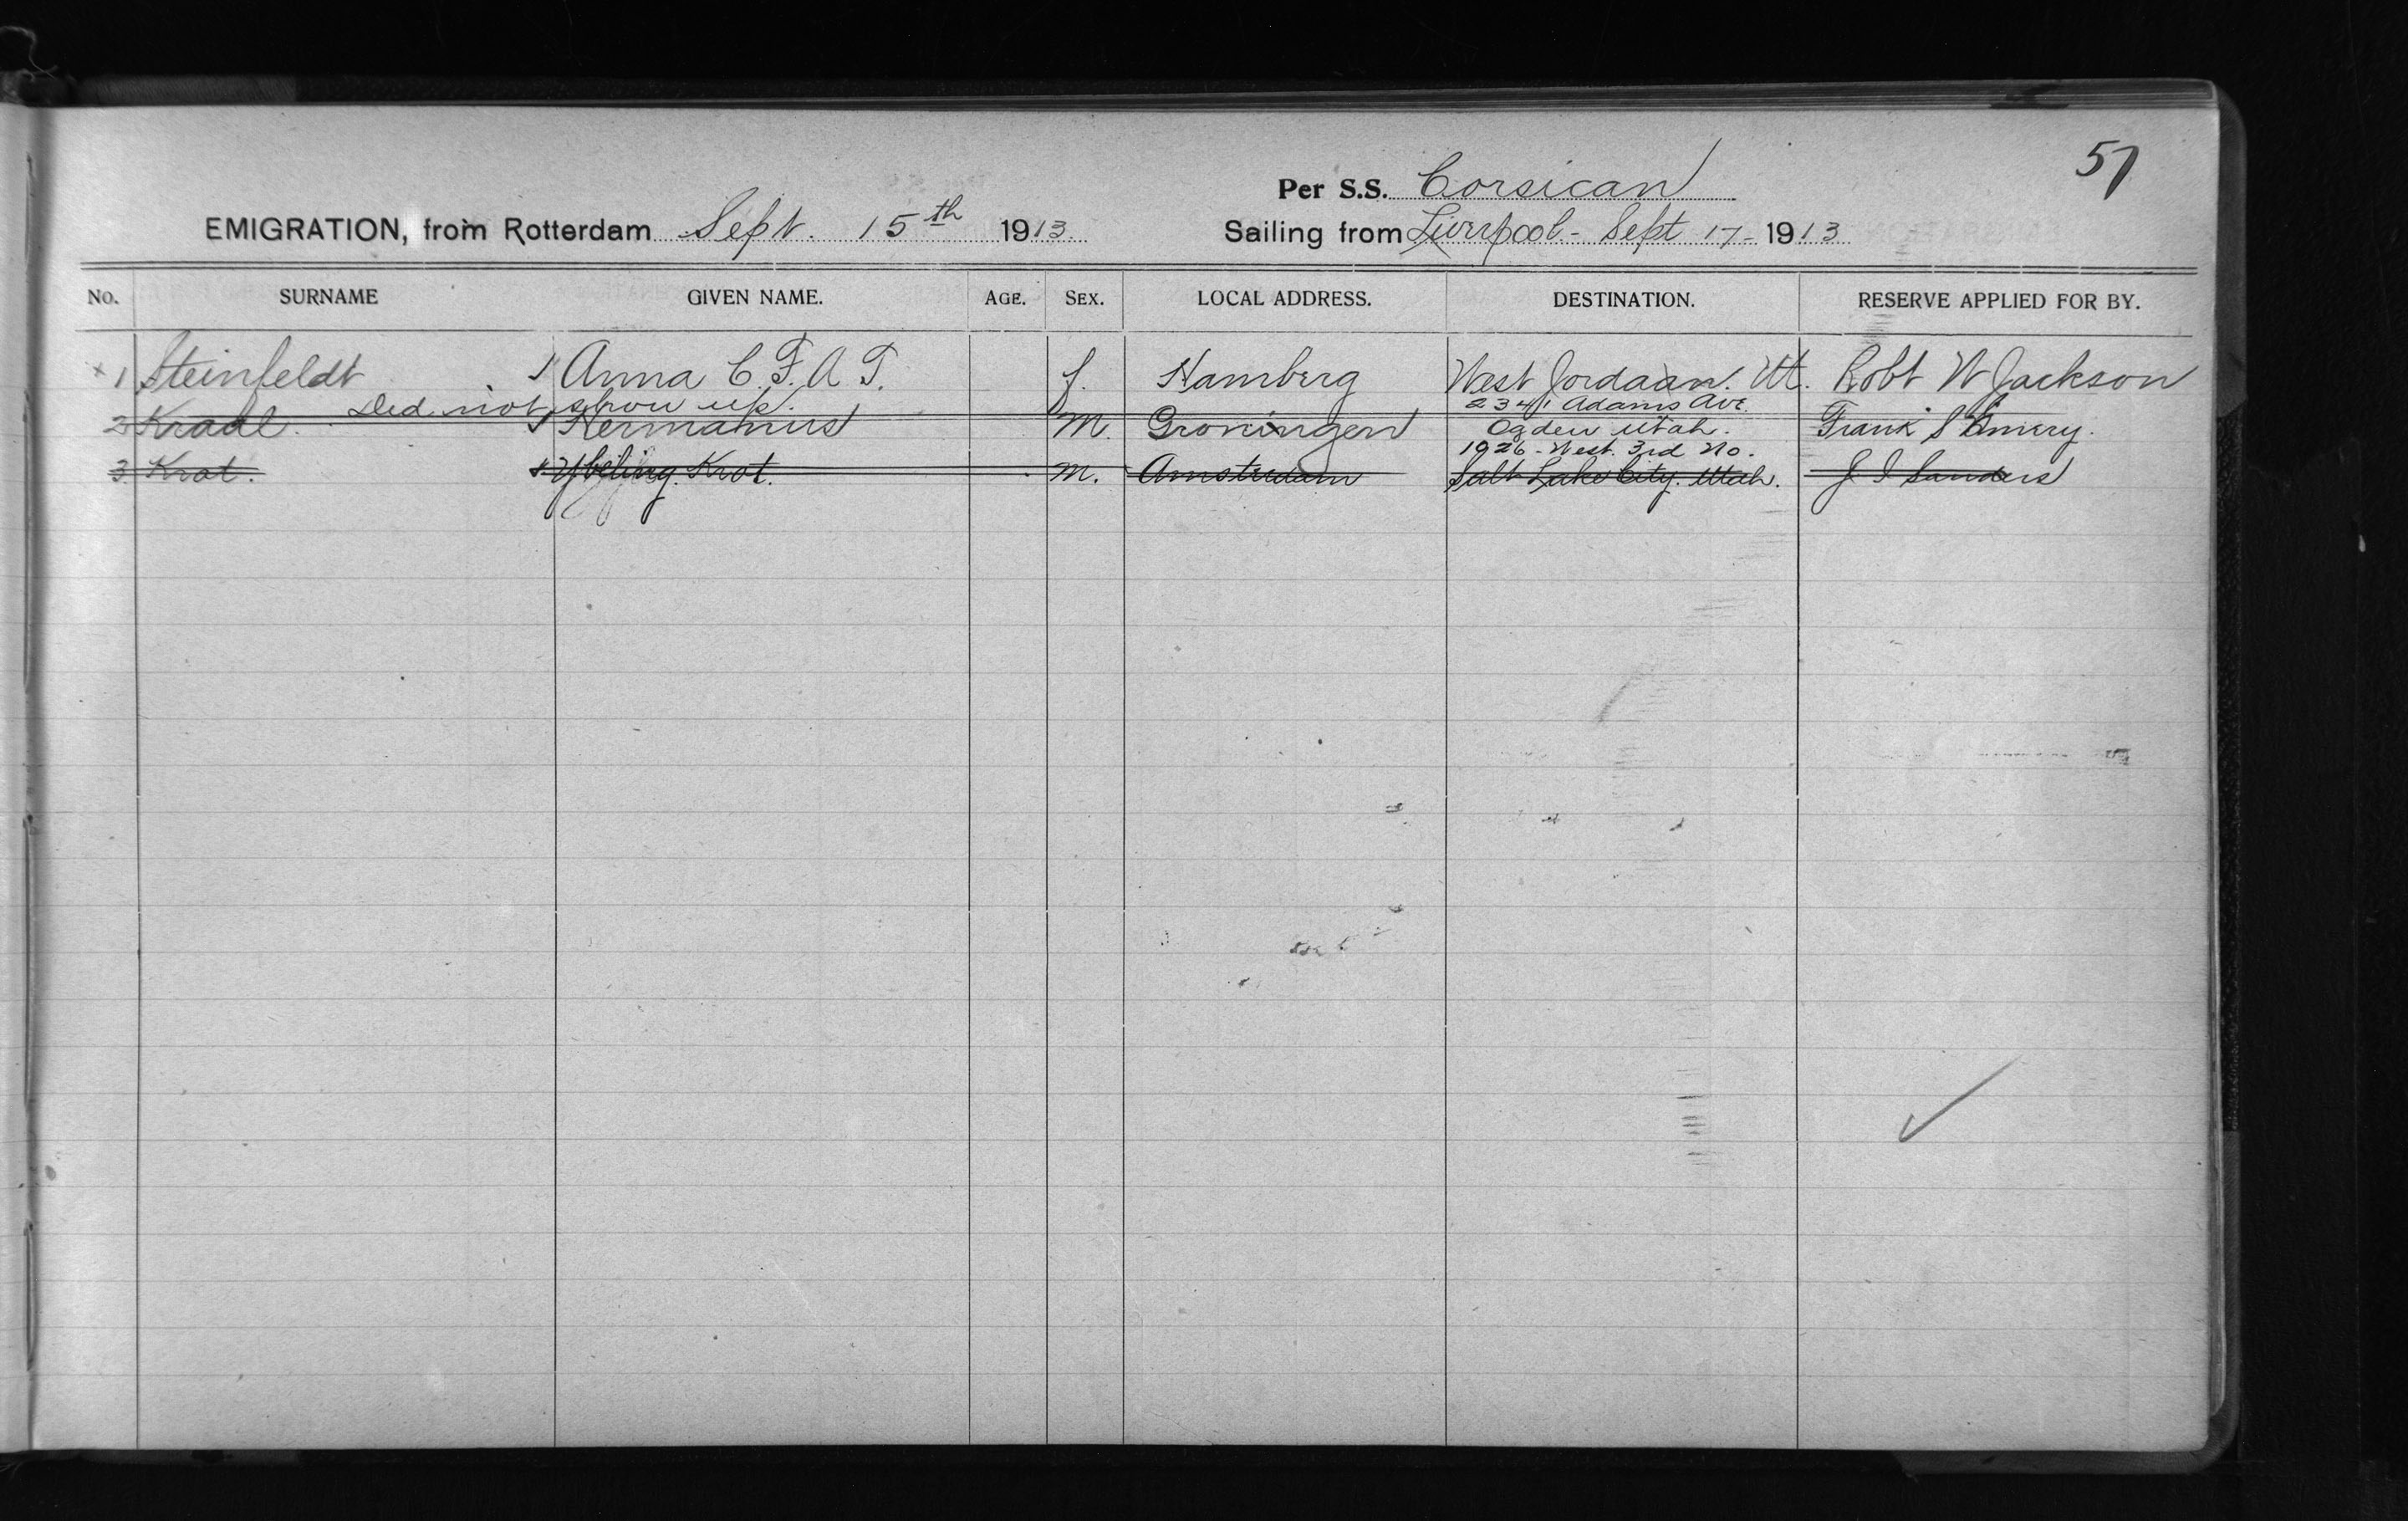 57
Per S.S. Corsican
EMIGRATION, from Rotterdam Sept. 15th 1913. Sailing from Liverpool - Sept 17 - 1913
No. SURNAME GIVEN NAME. AGE. SEX. LOCAL ADDRESS. DESTINATION. RESERVE APPLIED FOR BY.
x 1 Steinfeldt 1 Anna C. F. A F. f. Hamberg West Jordaan. Ut. Robt W Jackson
Did not show up. 2341 Adams Ave.
2 Kradl. 1 Hermanus M. Groningen Ogden Utah. Frank S Emery.
1926 - West. 3rd No.
3. Krot. 1 Krot. M. Amsterdam Salt Lake City. Utah. J I Sanders